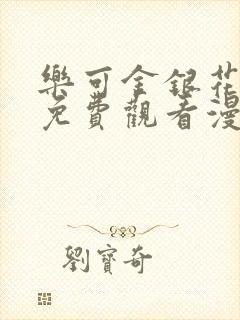 樂可金銀花
免費觀看漫
劉寶奇